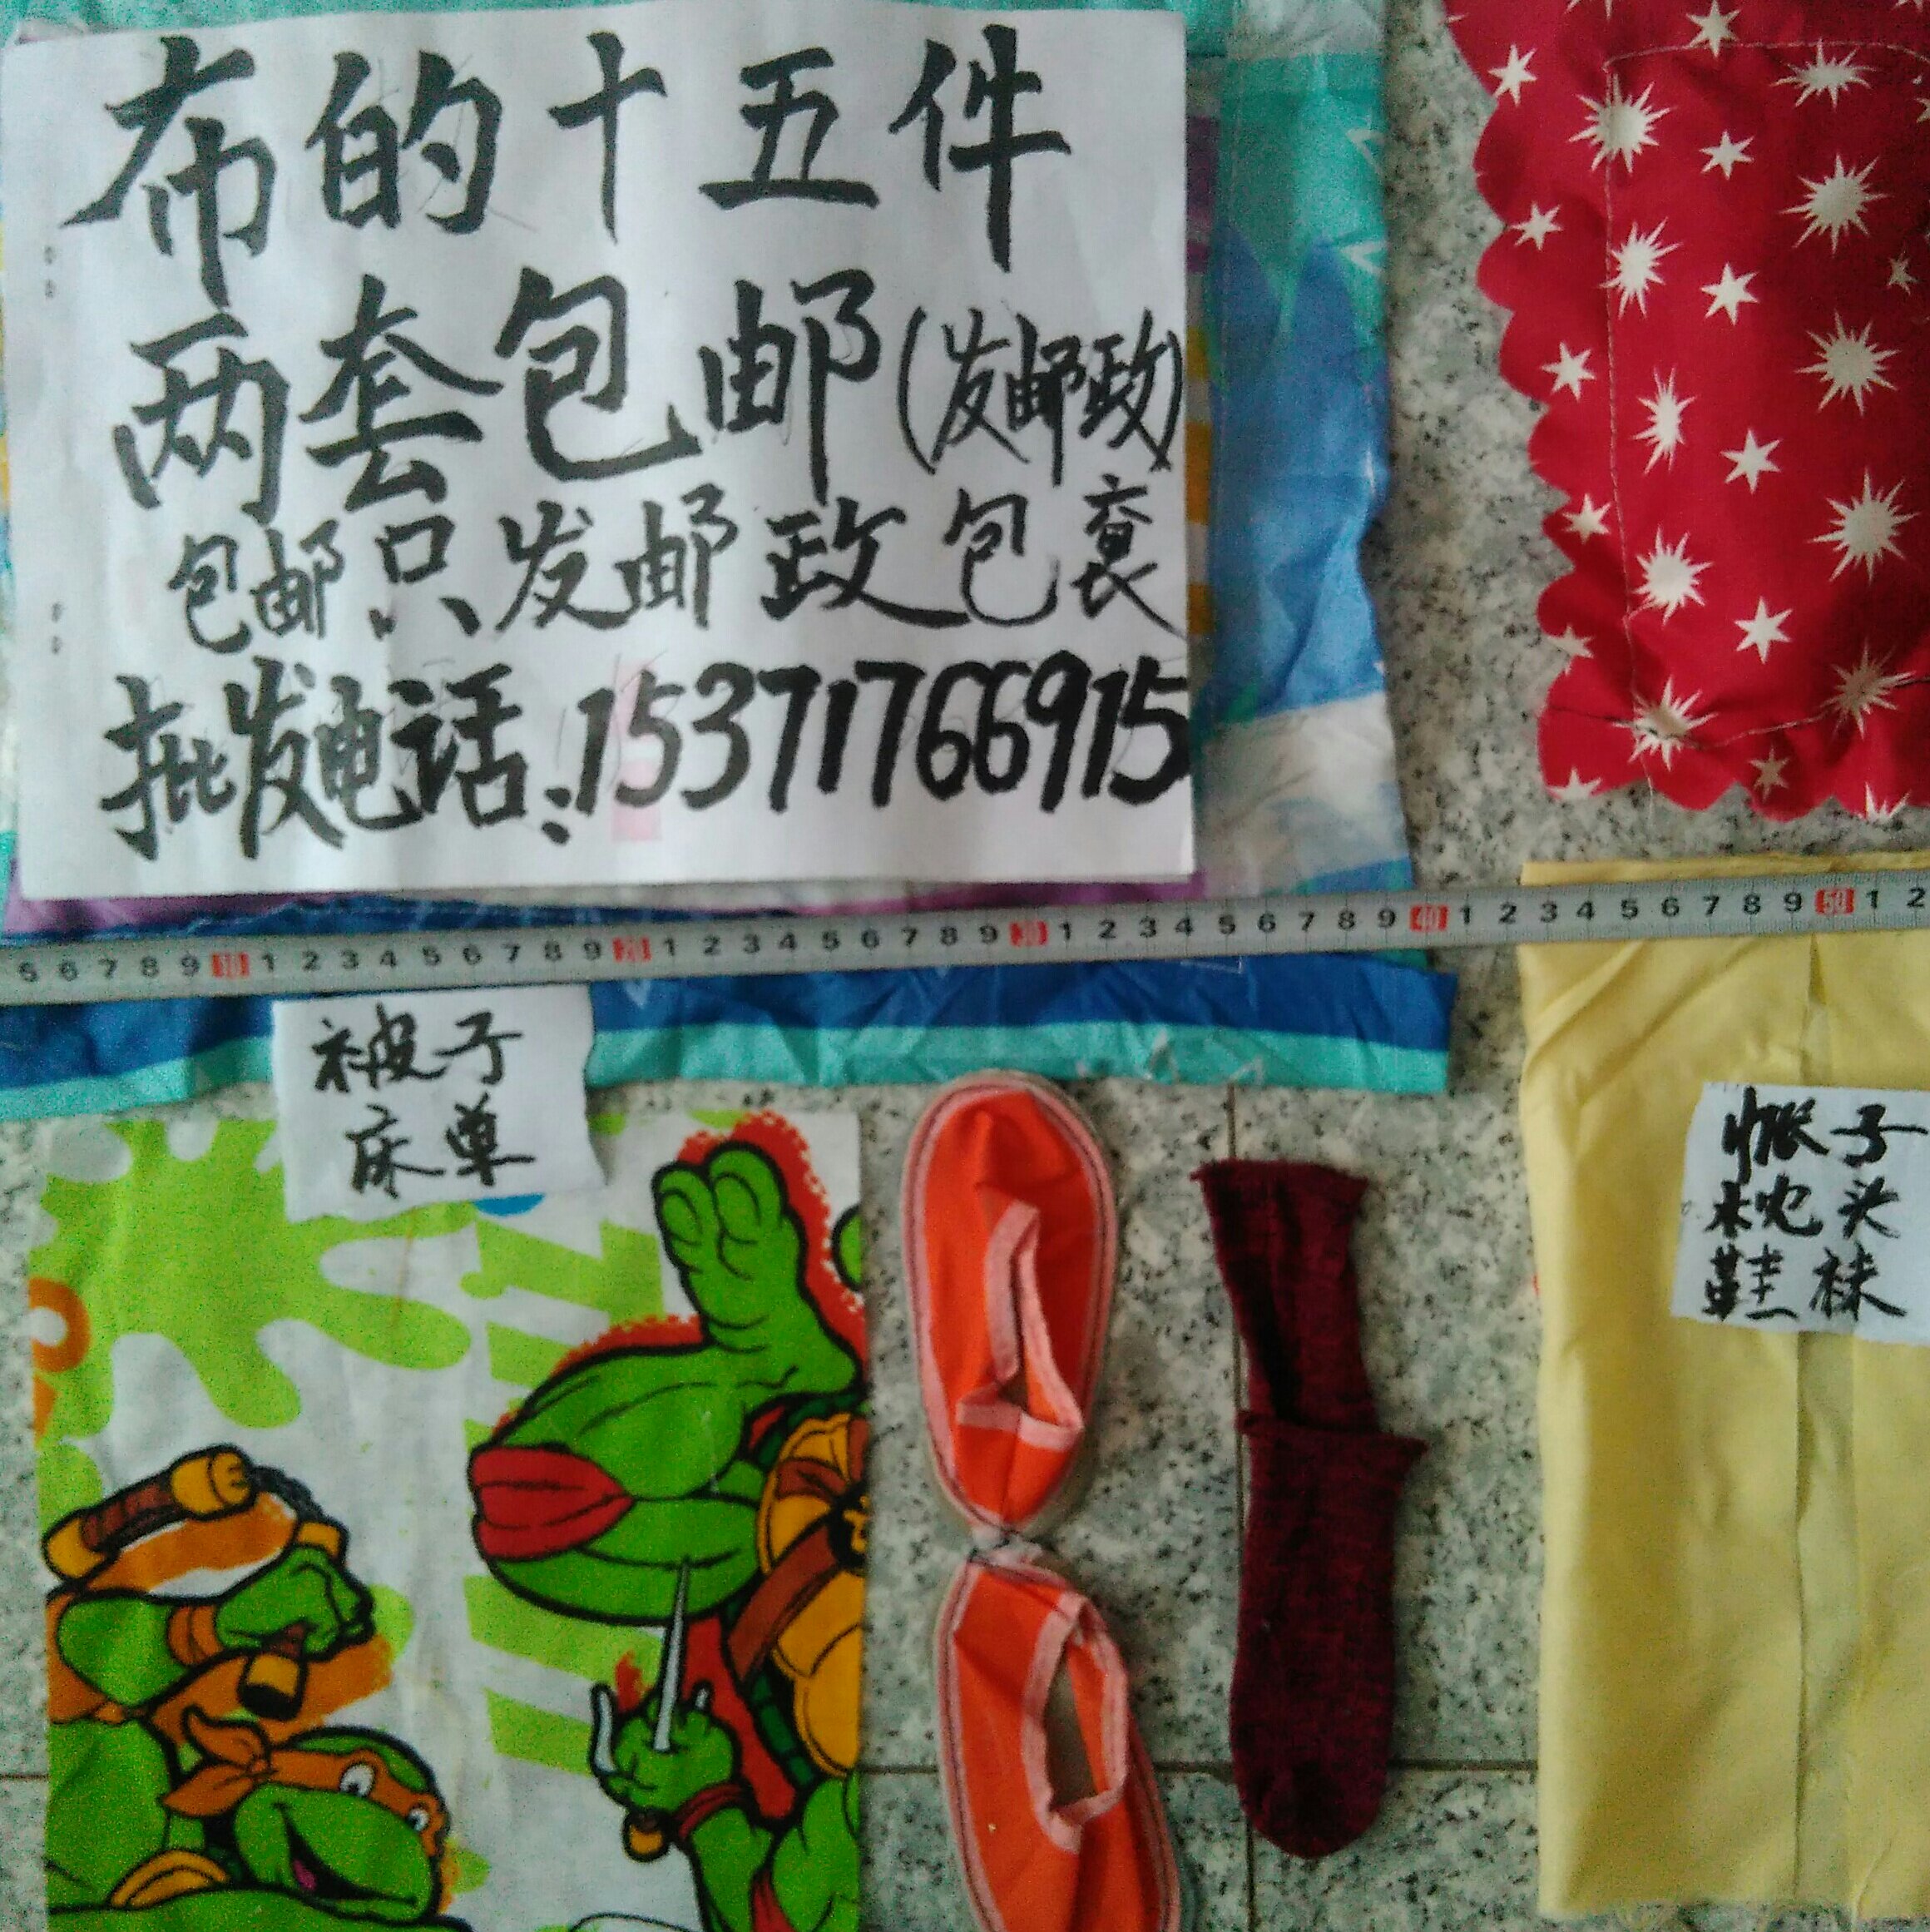 布的十五件
两套包邮(发邮政)
包邮只发邮政包裹
批发电话:15371766915
5 6 7 8 9 10 1 2 3 4 5 6 7 8 9 20 1 2 3 4 5 6 7 8 9 30 1 2 3 4 5 6 7 8 9 40 1 2 3 4 5 6 7 8 9 50 1 2
被子
床单
帐子
枕头
鞋袜